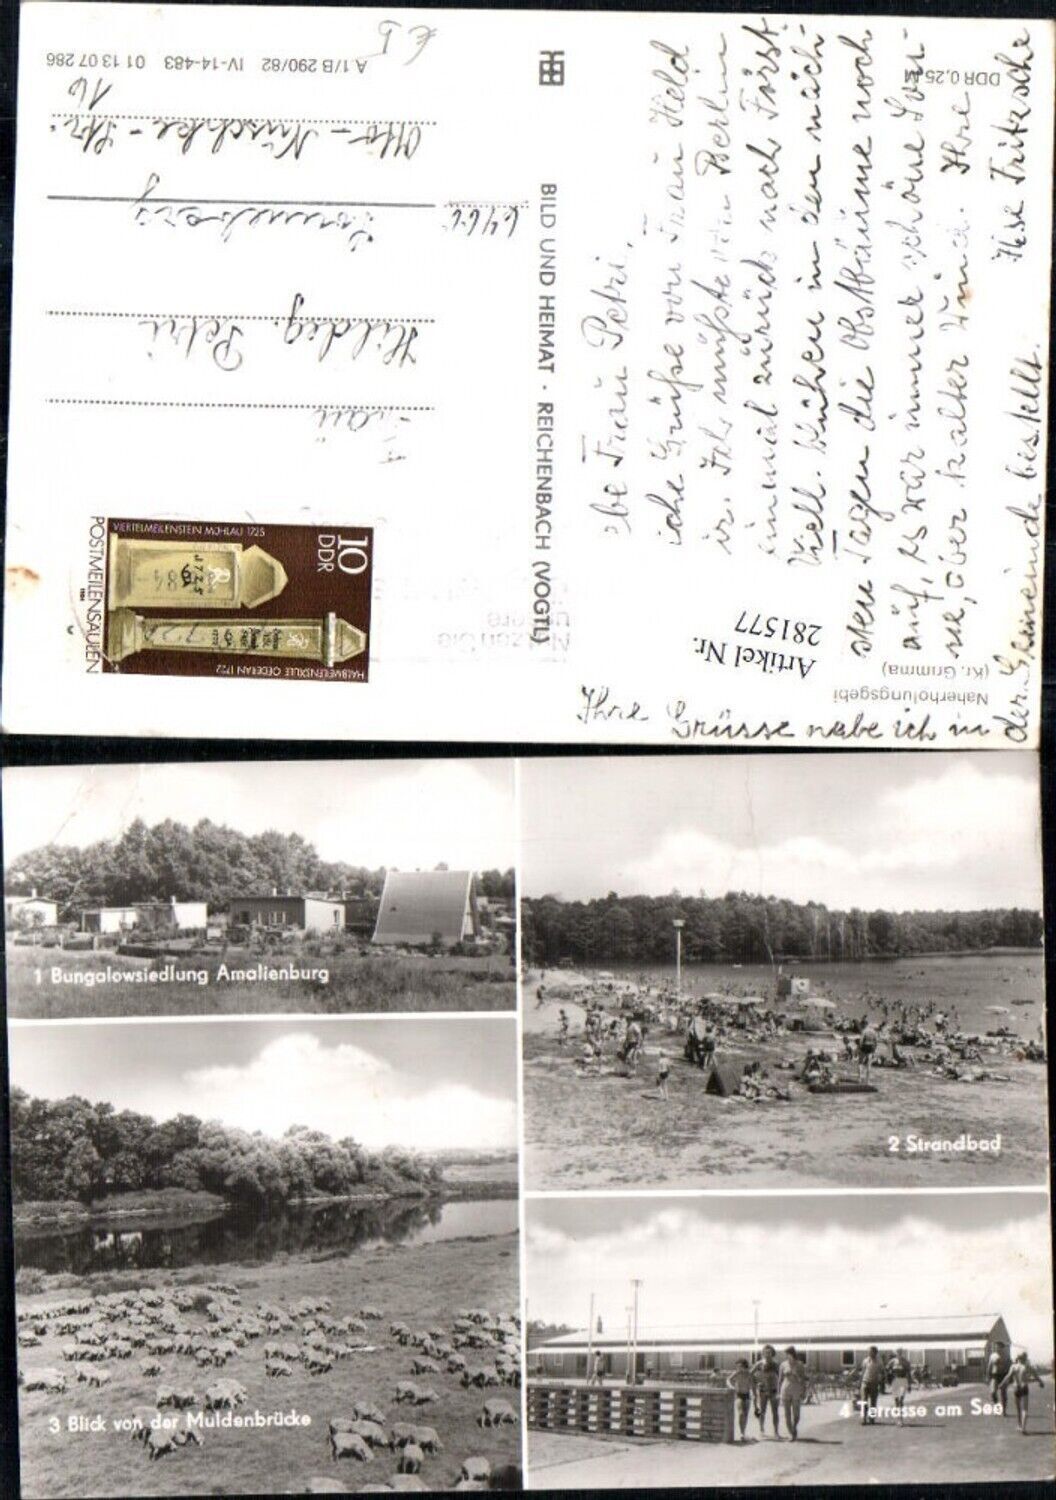 DDR 0,25 M
Naherholungsgebi
(Kr. Grimma)
Artikel Nr.
281577
be Frau Petri,
iche Grüsse von Frau Held
Ich müsste von Berlin
einmal zurück nach Forst
Viell. blühen in den näch-
sten Tagen die Obstbäume noch
auf, es war immer schöne Son-
ne, aber kalter Wind. Ihre
Ilse Fritzsche
Ihre Grüsse habe ich in
der Gemeinde bestellt.
BILD UND HEIMAT · REICHENBACH (VOGTL)
A 1/B 290/82 IV-14-483 01 13 07 286
10
DDR
VIERTELMEILENSTEIN MÜHLAU 1725
HALBMEILENSÄULE OEDERAN 1722
POSTMEILENSÄULEN
1984
Nutzen Sie
unsere
Frau
Hildeg. Petri
Sonneberg
Otto-Nuschke-Str.
16
1 Bungalowsiedlung Amalienburg
2 Strandbad
3 Blick von der Muldenbrücke
4 Terrasse am See